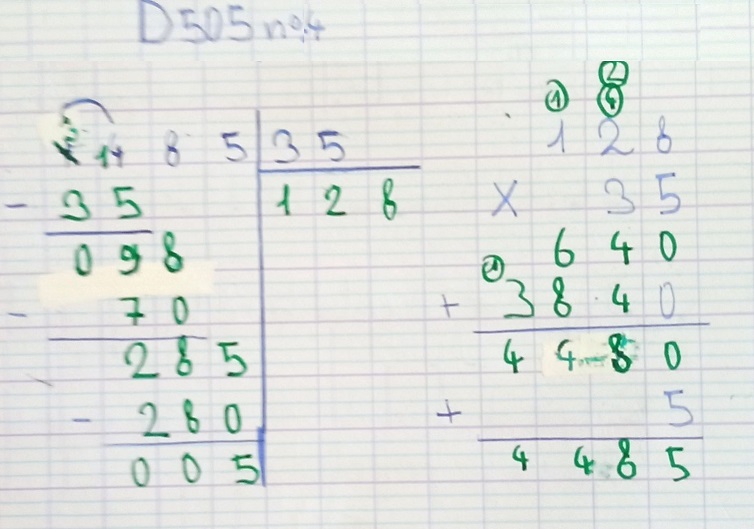 D505 no4
14 8 5 35
- 35 128
098
- 70
285
- 280
005
1 2
4
128
x 35
640
1
+ 3840
4480
+ 5
4485